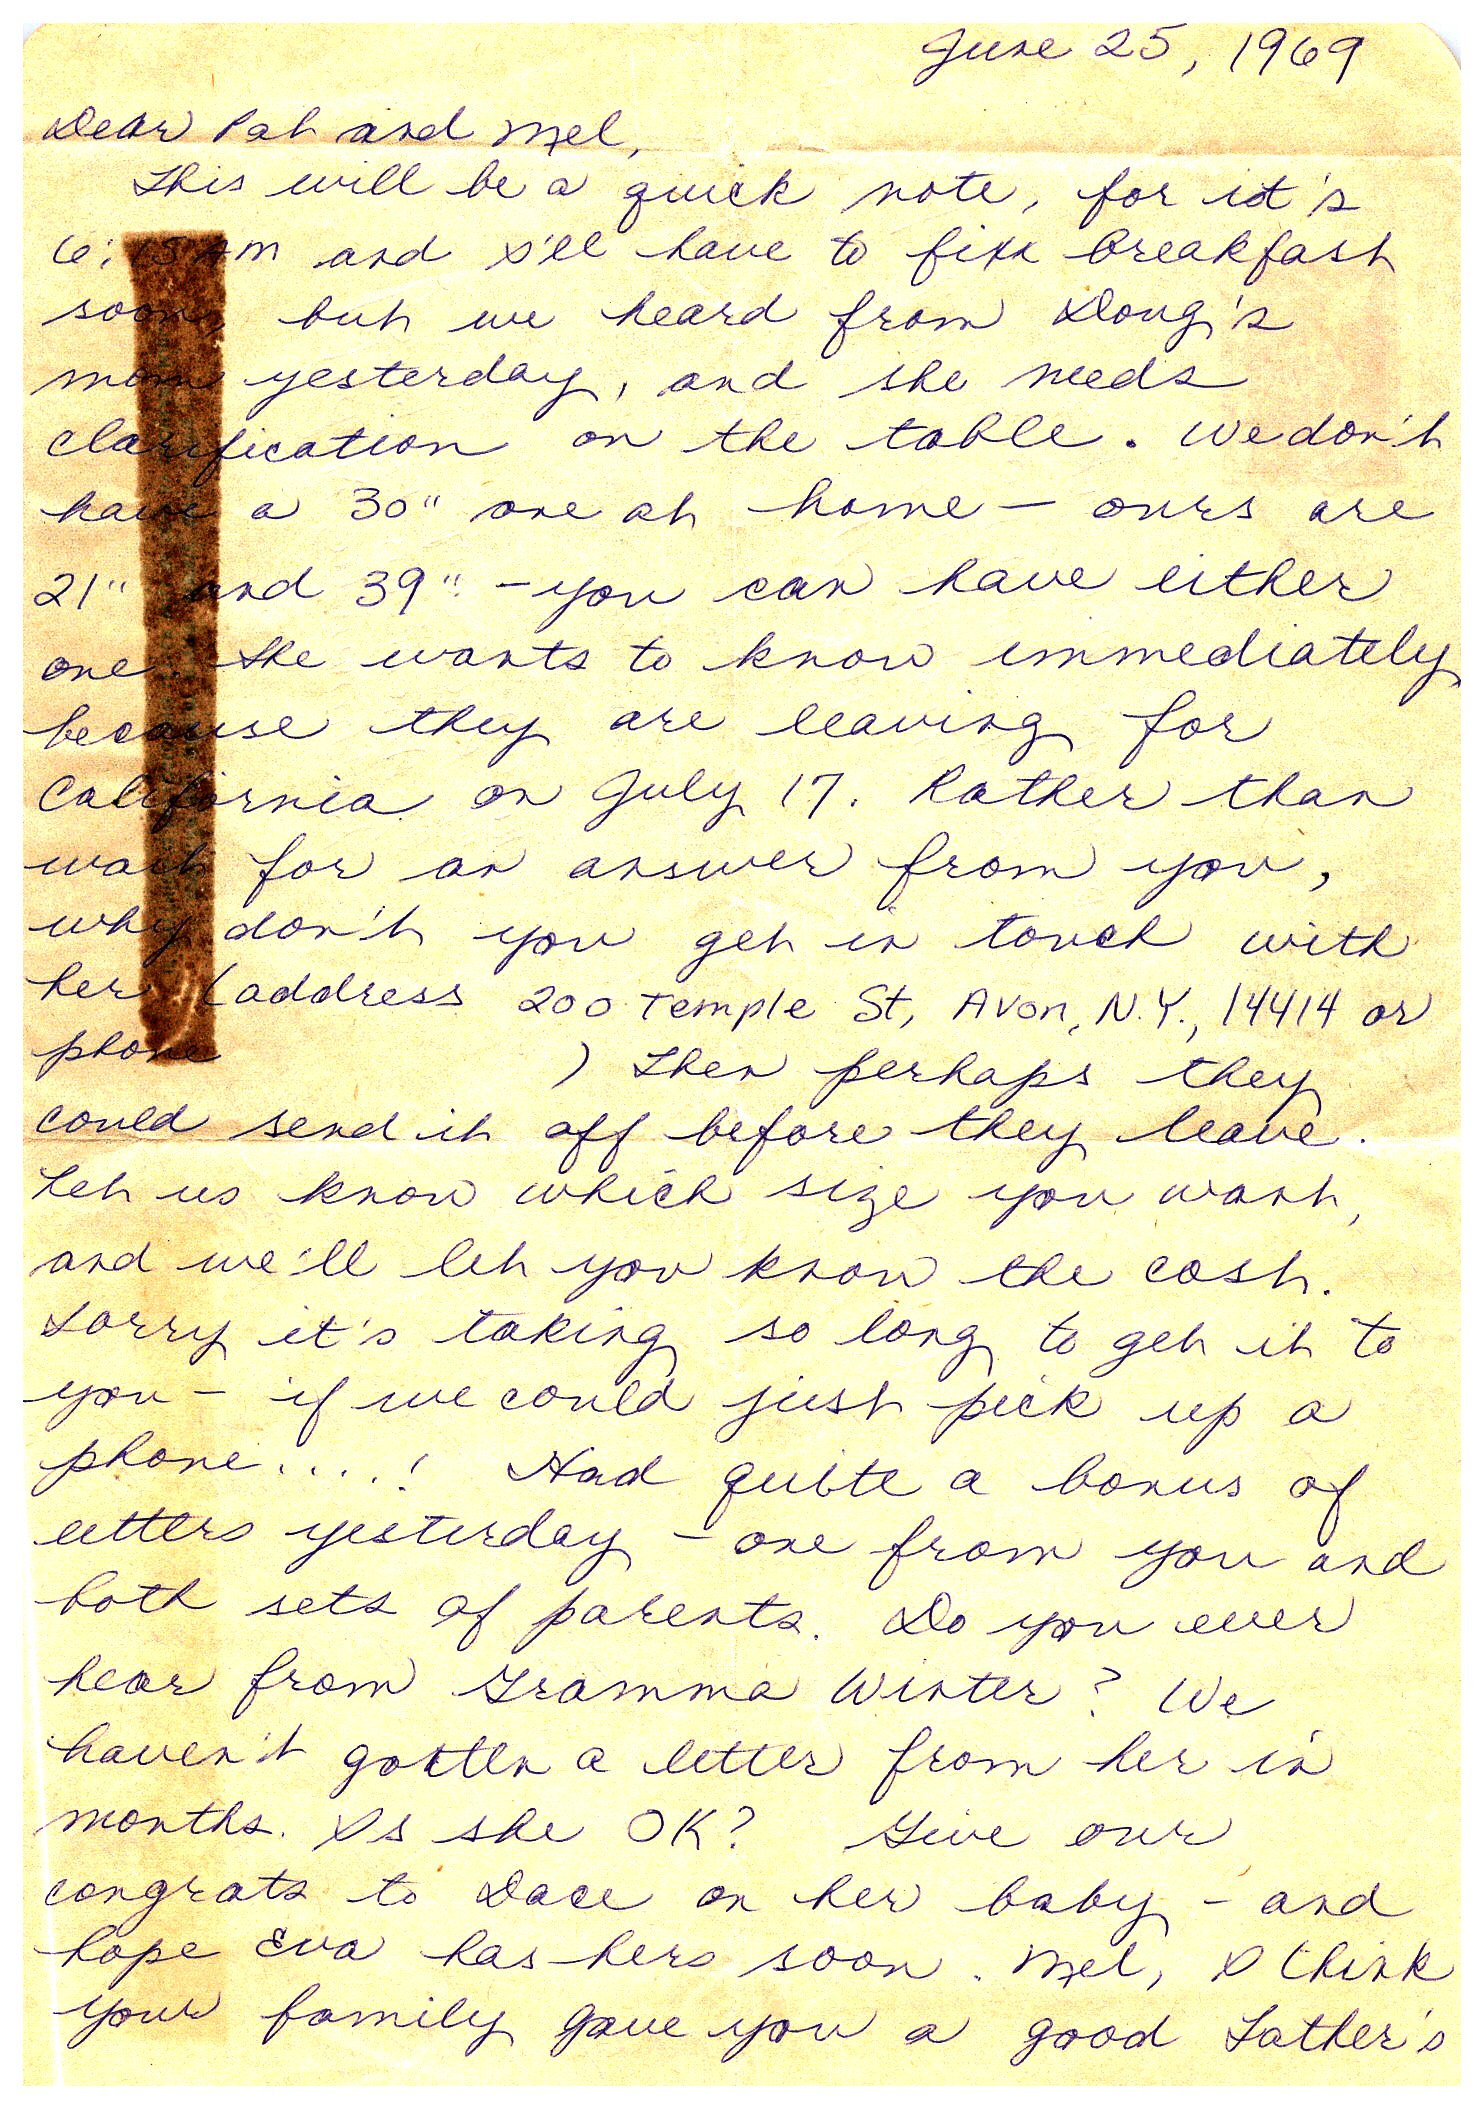 June 25, 1969
Dear Pat and Mel,
This will be a quick note, for it's
6:15 AM and I'll have to fix breakfast
soon, but we heard from Doug's
mom yesterday, and she needs
clarification on the table. We don't
have a 30" one at home — ours are
21" and 39" - you can have either
one. She wants to know immediately
because they are leaving for
California on July 17. Rather than
wait for an answer from you,
why don't you get in touch with
her (address 200 Temple St, Avon, N.Y., 14414 or
phone ) Then perhaps they
could send it off before they leave.
Let us know which size you want,
and we'll let you know the cost.
Sorry it's taking so long to get it to
you - if we could just pick up a
phone....! Had quite a bonus of
letters yesterday - one from you and
both sets of parents. Do you ever
hear from Gramma Winter? We
haven't gotten a letter from her in
months. Is she OK? Give our
congrats to Dace on her baby - and
hope Eva has hers soon. Mel, I think
your family gave you a good Father's